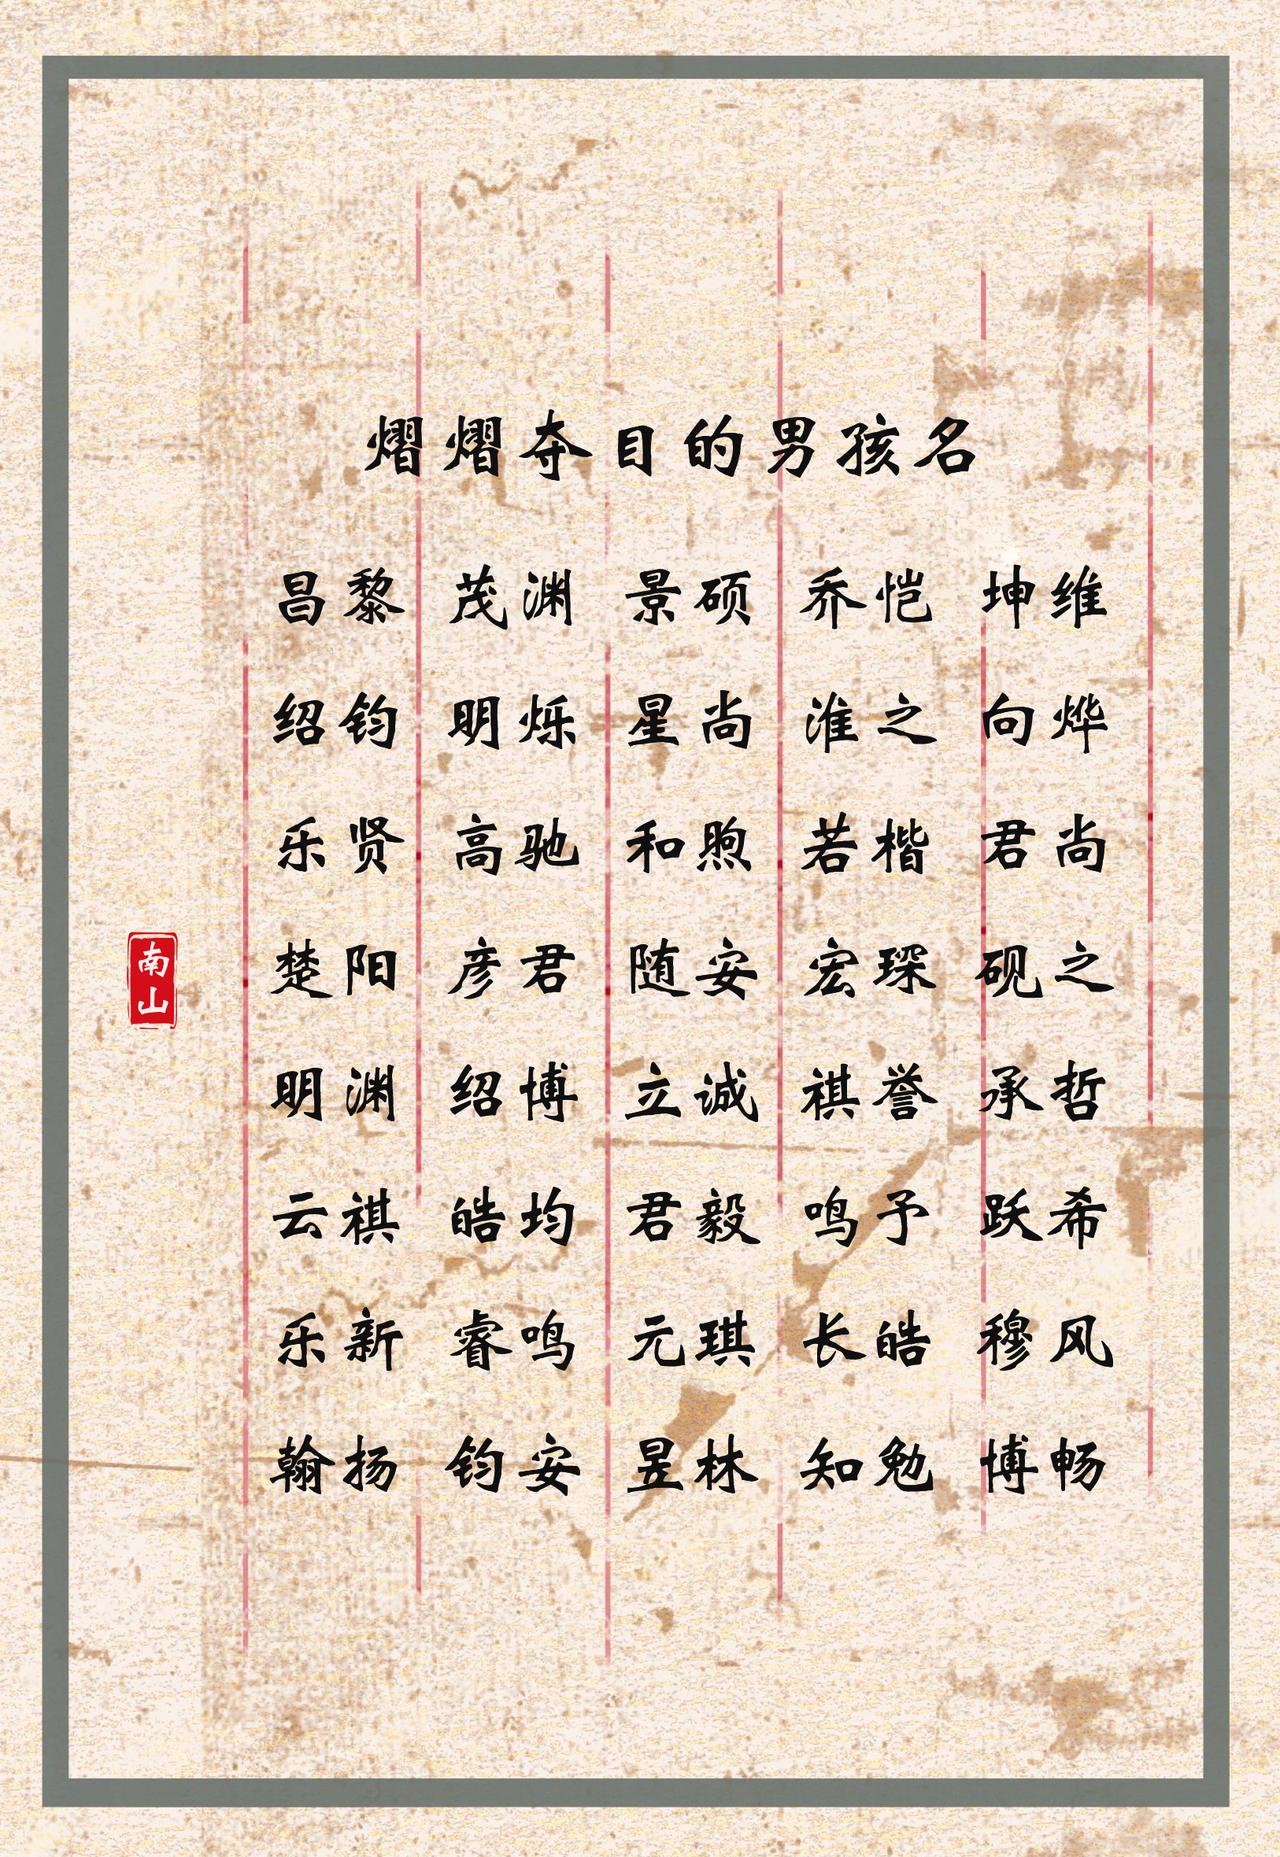 熠熠夺目的男孩名
昌黎 茂渊 景硕 乔恺 坤维
绍钧 明烁 星尚 淮之 向烨
乐贤 高驰 和煦 若楷 君尚
楚阳 彦君 随安 宏琛 砚之
明渊 绍博 立诚 祺誉 承哲
云祺 皓均 君毅 鸣予 跃希
乐新 睿鸣 元琪 长皓 穆风
翰扬 钧安 昱林 知勉 博畅
南山